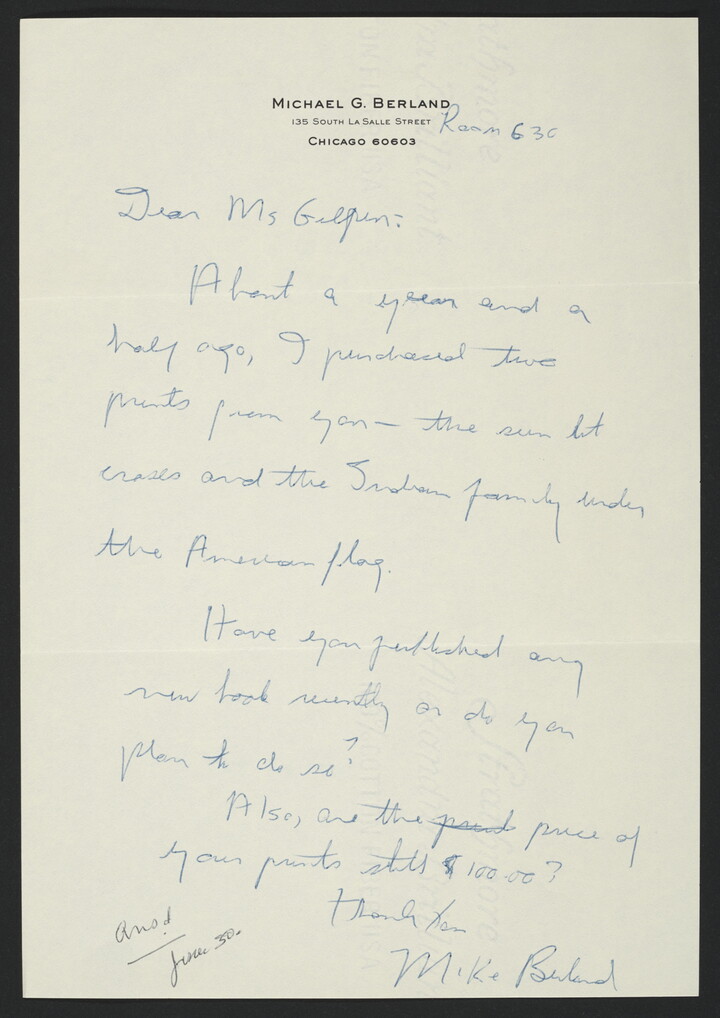 MICHAEL G. BERLAND
135 SOUTH LA SALLE STREET Room 630
CHICAGO 60603
Dear Ms Gilpin:
About a year and a
half ago, I purchased two
prints from you — the sun lit
crosses and the Indian family under
the American flag.
Have you published any
new book recently or do you
plan to do so?
Also, are the price of
your prints still $100.00?
Thank You
Mike Berland
Ansd
June 30.